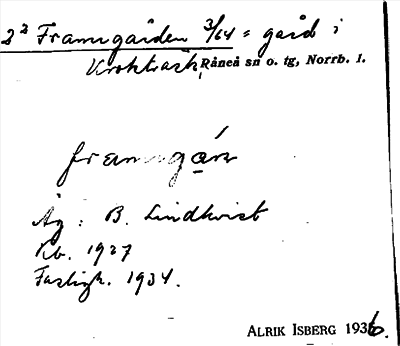 2² Framgården 3/64 = gård i
Krokträsk, Råneå sn o. tg, Norrb. l.
framgá̱n
Äg: B. Lindkvist
Kb. 1927
Fastigh. 1934.
ALRIK ISBERG 1936.